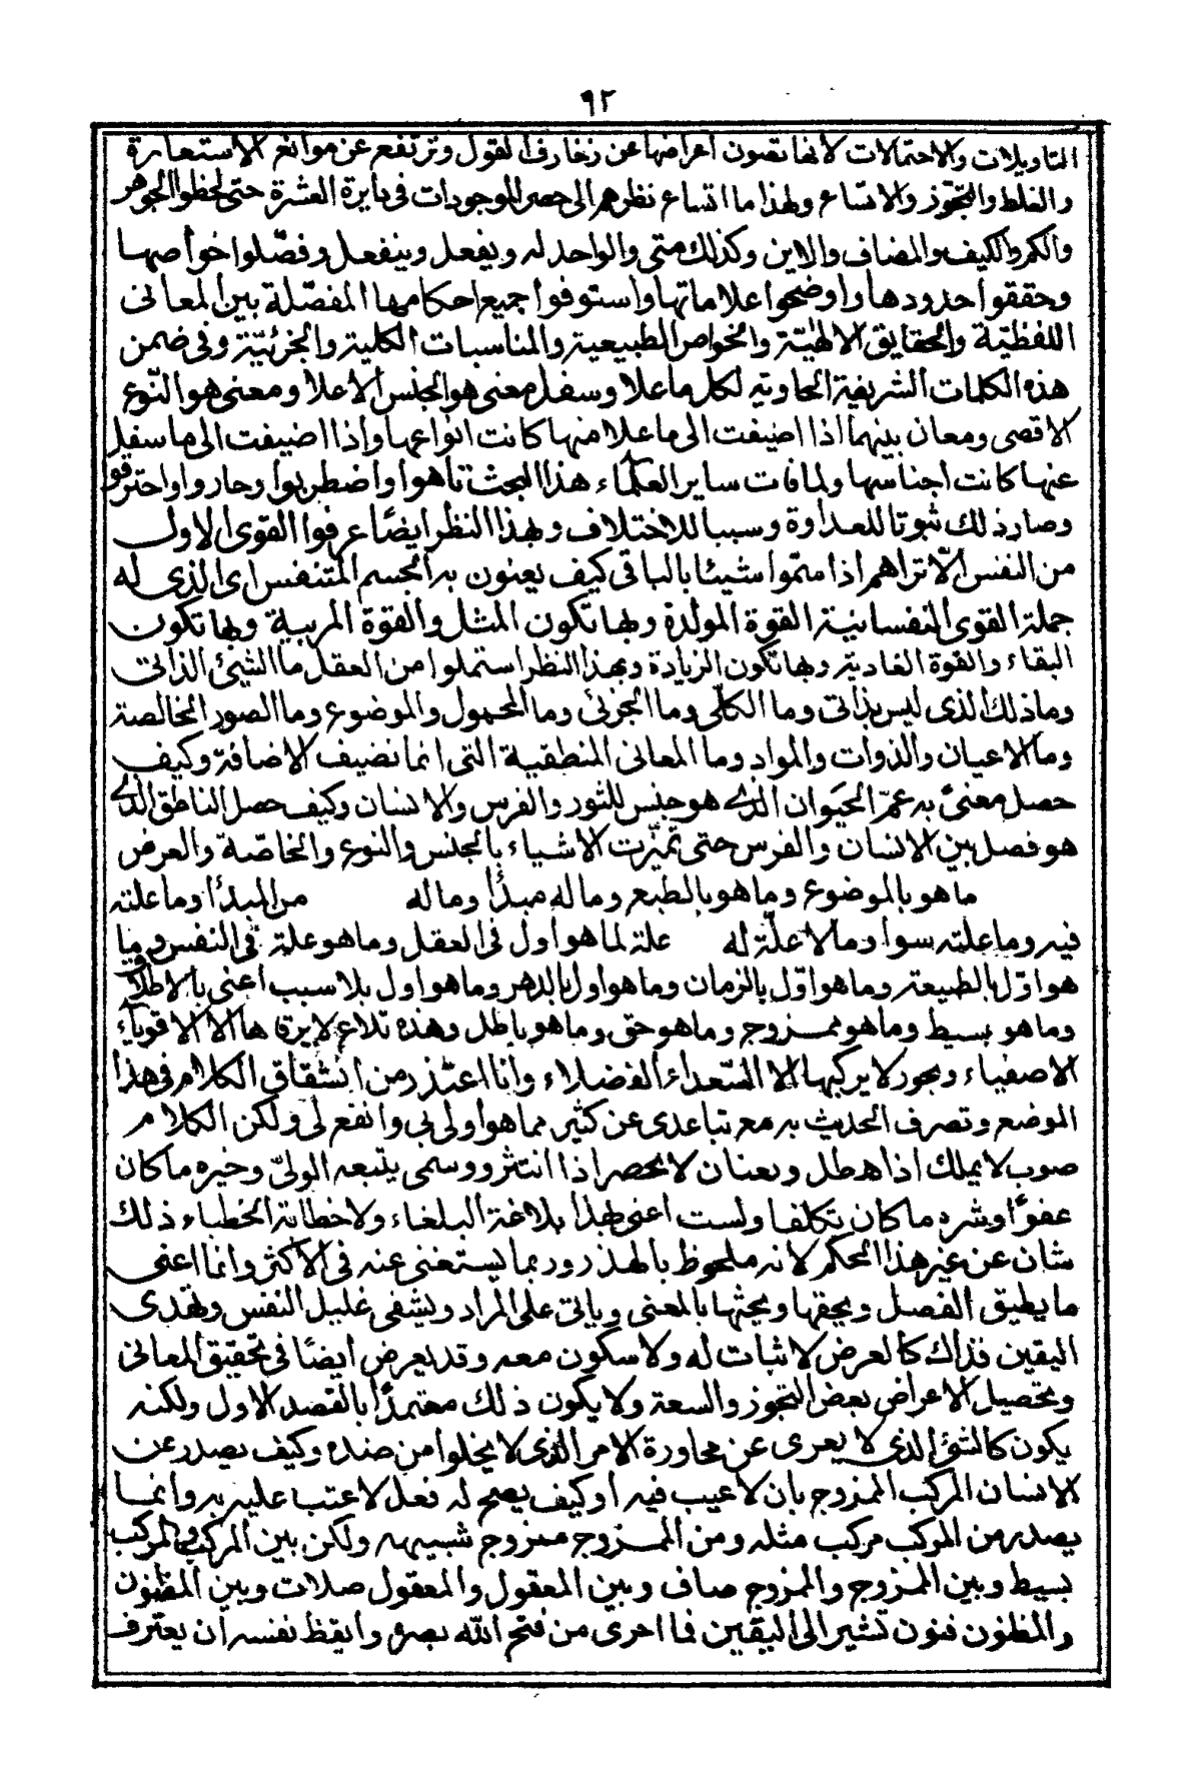 ٩٢
التاويلات والاحتمالات لانها تصون اعراضها عن زخارف القول وترتفع عن موانع الاستعارة
والغلط والتجوّز والاتساع ولهذا ما اتساع نظرهم الى حصر الموجودات فى دايرة العشرة حتى لحظوا الجوهر
والكم والكيف والمضاف والاين وكذلك متى والواحد له ويفعل وينفعل وفصّلوا خواصها
وحققوا حدودها واوضحوا علاماتها واستوفوا جميع احكامها المفصّلة بين المعانى
اللفظيّة والحقايق الالهيّة والخواص الطبيعية والمناسبات الكلية والجزئيّة وفى ضمن
هذه الكلمات الشريفة الحاوية لكل ما علا وسفل معنى هو الجنس الاعلا ومعنى هو النّوع
الاقصى ومعان بينهما اذا اضيفت الى ما علا منها كانت انواعها واذا اضيفت الى ما سفل
عنها كانت اجناسها ولما فات ساير العلماء هذا البحث تاهوا واضطربوا وحاروا واحترقوا
وصار ذلك ثبوتا للعداوة وسببا للاختلاف وبهذا النظر ايضًا عرفوا القوى الاول
من النفس الّا تراهم اذا سمّوا شيئا بالباقى كيف يعنون به الجسم المتنفس اى الذى له
جملة القوى النفسانية القوة المولدة وبها تكون المثل والقوة المربية وبها تكون
البقاء والقوة الغادية وبها تكون الزيادة وبهذا النظر استملوا من العقل ما الشيئ الذاتى
وما ذلك الذى ليس بذاتى وما الكلّى وما الجزئى وما المحمول والموضوع وما الصور الخالصة
وما الاعيان والذوات والمواد وما المعانى المنطقية التى انما نضيف الاضافة وكيف
حصل معنىً به عمّ الحيَوان الذى هو جنس للثور والفرس والانسان وكيف حصل الناطق الذى
هو فصل بين الانسان والفرس حتى تميّزت الاشياء بالجنس والنوع والخاصّة والعرض
ما هو بالموضوع وما هو بالطبع وما له مبدأ وما له من المبدأ وما علته
فيه وما علته سوا وما لا علّة له علة لما هو اول فى العقل وما هو علة فى النفس وما
هو اوّل بالطبيعة وما هو اوّل بالزمان وما هو اول بالدهر وما هو اول بلا سبب اعنى بالاطلاق
وما هو بسيط وما هو ممزوج وما هو حق وما هو باطل وهذه تلاع لا يرقاها الا الاقوياء
الاصفياء وبحور لا يركبها الا السّعداء الفضلاء وانا اعتذر من انشقاق الكلام فى هذا
الموضع وتصرف الحديث به مع تباعدى عن كثير مما هو اولى بى وانفع لى ولكن الكلام
صوب لا يملك اذا هطل وبعنان لا يحصر اذا انتثر ووسمى يتبعه الولىّ وخيره ما كان
عفوًا وشره ما كان تكلفا ولست اعنى بهذا بلاغة البلغاء ولا خطابة الخطباء ذلك
شان عن غير هذا الحكم لانه ملحوظ بالهذر وربما يستغنى عنه فى الاكثر وانما اعنى
ما يطيق الفصل ويحقها ويحثها بالمعنى وياتى على المراد ويشفى غليل النفس ويهدى
اليقين فذاك كالعرض لا ثبات له ولا سكون معه وقد يعرض ايضًا فى تحقيق المعانى
وتحصيل الاعراض بعض التجوز والسعة ولا يكون ذلك معتمدًا بالقصد الاول ولكنه
يكون كالشئ الذى لا يعرى عن مجاورة الامر الذى لا يخلوا من ضده وكيف يصدر عن
الانسان المركب الممزوج بان لا عيب فيه او كيف يصح له فعل لا عتب عليه به وانما
يصدر من المركب مركب مثله ومن الممزوج ممزوج شبيهه ولكن بين المركب والمركب
بسيط وبين الممزوج والممزوج صاف وبين المعقول والمعقول صلات وبين المظنون
والمظنون فنون تشير الى اليقين فما احرى من فتح الله بصره وايقظ نفسه ان يعترف